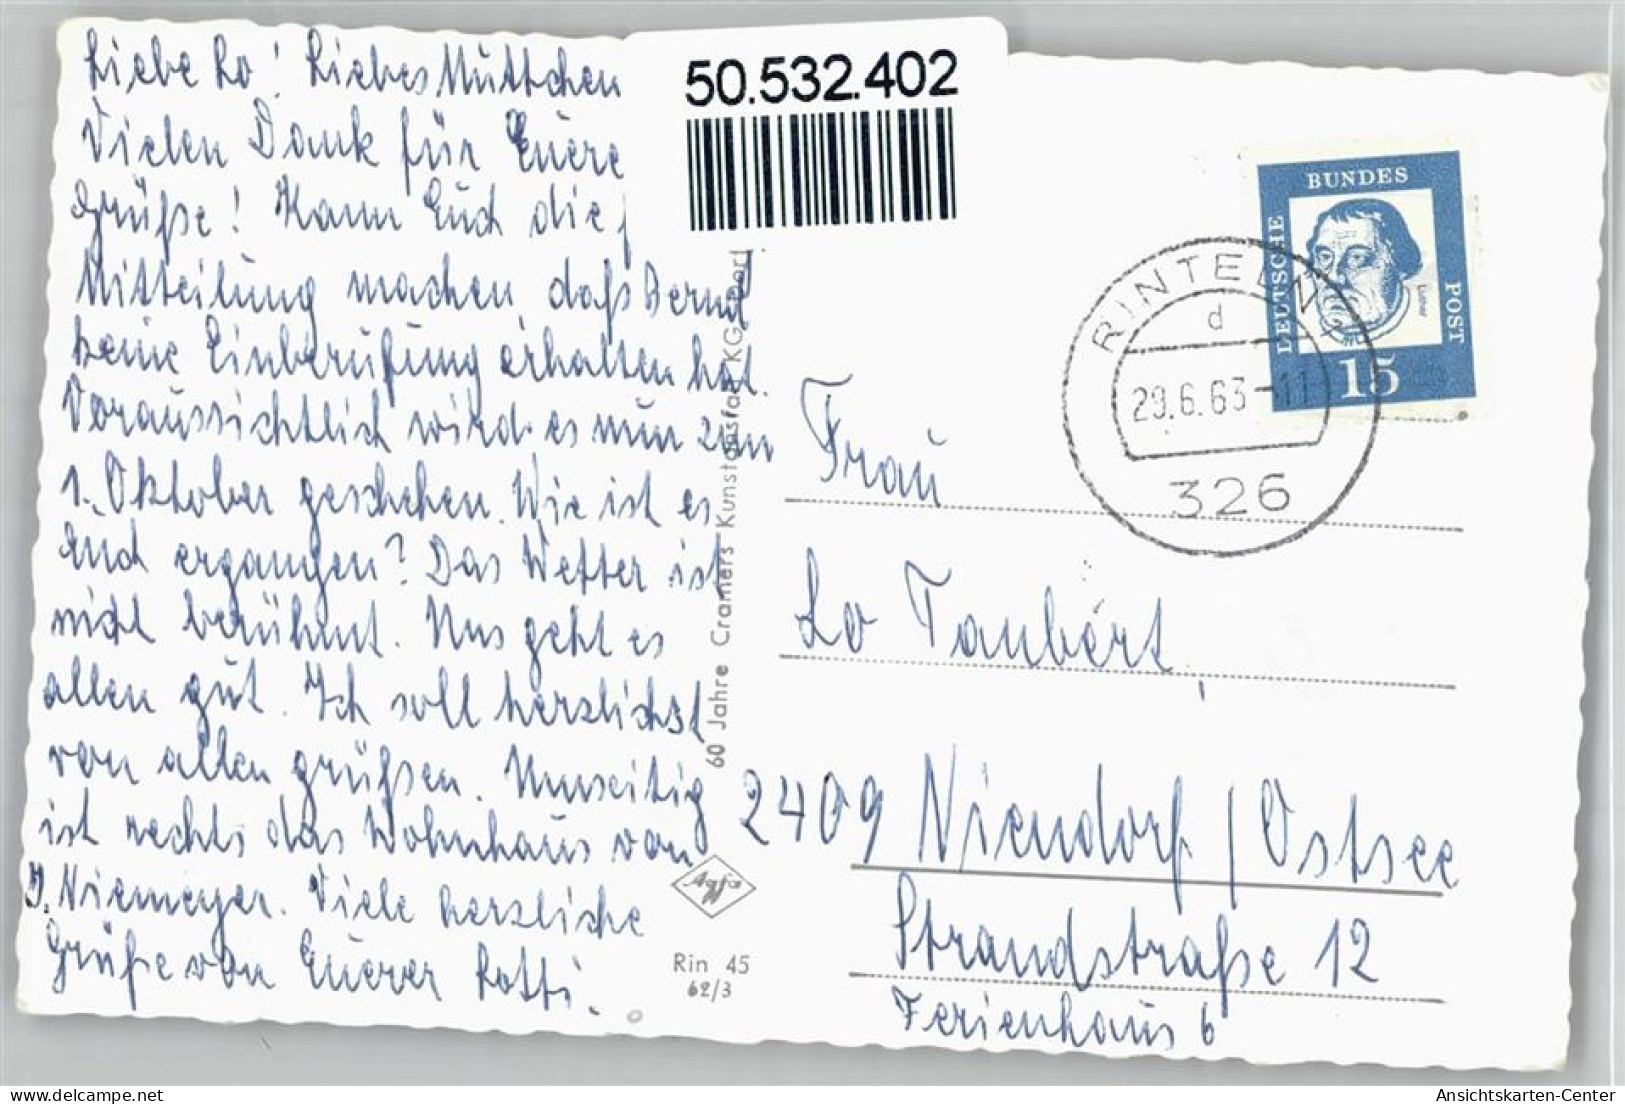 Liebe Lo! Liebes Muttchen
Vielen Dank für Euere
Grüße! Kann Euch die
Mitteilung machen, daß Bernd
keine Einberufung erhalten hat.
Voraussichtlich wird es nun zum
1. Oktober geschehen. Wie ist es
Euch ergangen? Das Wetter ist
nicht berühmt. Uns geht es
allen gut. Ich soll herzlichst
von allen grüßen. Umseitig
ist rechts das Wohnhaus von
J. Niemeyer. Viele herzliche
Grüße von Euerer Lotti.
50.532.402
60 Jahre Cramers Kunstanstalt KG, Dort
Agfa
Rin 45
62/3
DEUTSCHE
BUNDES
POST
Luther
15
RINTELN
d
29.6.63-11
326
Frau
Lo Taubert,
2409 Niendorf/Ostsee
Strandstraße 12
Ferienhaus 6
Ansichtskarten-Center